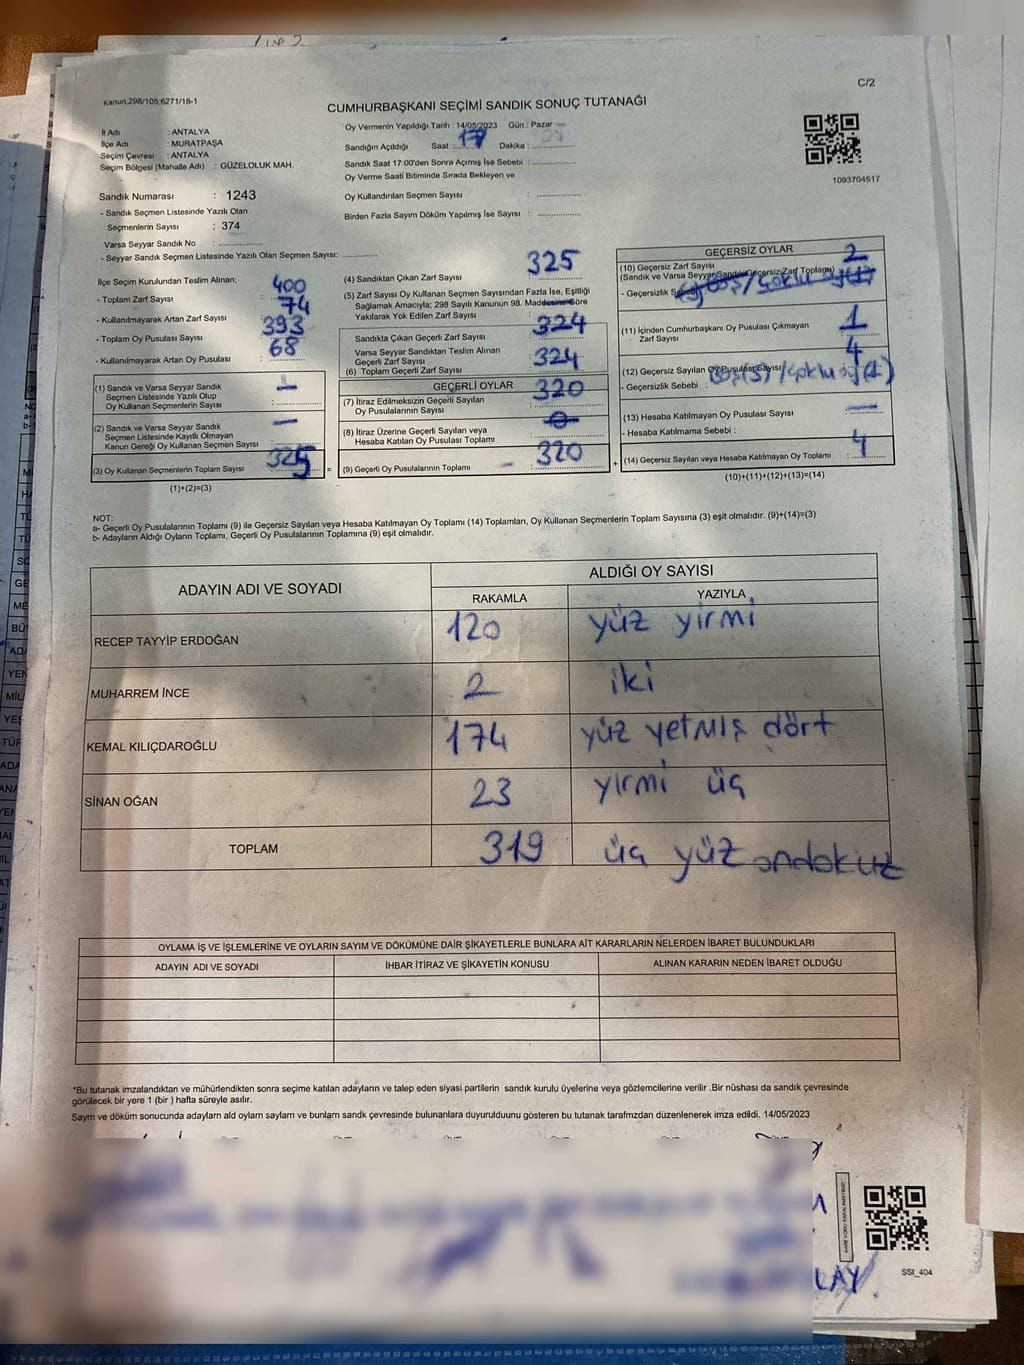 C/2
Kanun:298/105;6271/18-1
CUMHURBAŞKANI SEÇİMİ SANDIK SONUÇ TUTANAĞI
İl Adı : ANTALYA
İlçe Adı : MURATPAŞA
Seçim Çevresi : ANTALYA
Seçim Bölgesi (Mahalle Adı) : GÜZELOLUK MAH.
Oy Vermenin Yapıldığı Tarih : 14/05/2023 Gün : Pazar
Sandığın Açıldığı Saat : 17 Dakika :
Sandık Saat 17:00'den Sonra Açımış İse Sebebi :
Oy Verme Saati Bitiminde Sırada Bekleyen ve
Oy Kullandırılan Seçmen Sayısı :
Birden Fazla Sayım Döküm Yapılmış İse Sayısı :
1093704517
Sandık Numarası : 1243
- Sandık Seçmen Listesinde Yazılı Olan
Seçmenlerin Sayısı : 374
Varsa Seyyar Sandık No :
- Seyyar Sandık Seçmen Listesinde Yazılı Olan Seçmen Sayısı:
İlçe Seçim Kurulundan Teslim Alınan;
- Toplam Zarf Sayısı : 400
- Kullanılmayarak Artan Zarf Sayısı : 74
- Toplam Oy Pusulası Sayısı : 393
- Kullanılmayarak Artan Oy Pusulası : 68
(1) Sandık ve Varsa Seyyar Sandık
Seçmen Listesinde Yazılı Olup
Oy Kullanan Seçmenlerin Sayısı : —
(2) Sandık ve Varsa Seyyar Sandık
Seçmen Listesinde Kayıtlı Olmayan
Kanun Gereği Oy Kullanan Seçmen Sayısı : —
(3) Oy Kullanan Seçmenlerin Toplam Sayısı : 325
(1)+(2)=(3)
(4) Sandıktan Çıkan Zarf Sayısı : 325
(5) Zarf Sayısı Oy Kullanan Seçmen Sayısından Fazla İse, Eşitliği
Sağlamak Amacıyla; 298 Sayılı Kanunun 98. Maddesine Göre
Yakılarak Yok Edilen Zarf Sayısı : —
Sandıkta Çıkan Geçerli Zarf Sayısı : 324
Varsa Seyyar Sandıktan Teslim Alınan
Geçerli Zarf Sayısı
(6) Toplam Geçerli Zarf Sayısı : 324
GEÇERLİ OYLAR
(7) İtiraz Edilmeksizin Geçerli Sayılan
Oy Pusulalarının Sayısı : 320
(8) İtiraz Üzerine Geçerli Sayılan veya
Hesaba Katılan Oy Pusulası Toplamı : 0
= (9) Geçerli Oy Pusulalarının Toplamı 320
GEÇERSİZ OYLAR
(10) Geçersiz Zarf Sayısı 2
(Sandık ve Varsa Seyyar Sandık Geçersiz Zarf Toplamı)
- Geçersizlik Sebebi
(11) İçinden Cumhurbaşkanı Oy Pusulası Çıkmayan
Zarf Sayısı : 1
(12) Geçersiz Sayılan Oy Pusulası Sayısı 4
- Geçersizlik Sebebi :
(13) Hesaba Katılmayan Oy Pusulası Sayısı : —
- Hesaba Katılmama Sebebi :
+ (14) Geçersiz Sayılan veya Hesaba Katılmayan Oy Toplamı : 4
(10)+(11)+(12)+(13)=(14)
NOT:
a- Geçerli Oy Pusulalarının Toplamı (9) ile Geçersiz Sayılan veya Hesaba Katılmayan Oy Toplamı (14) Toplamları, Oy Kullanan Seçmenlerin Toplam Sayısına (3) eşit olmalıdır. (9)+(14)=(3)
b- Adayların Aldığı Oyların Toplamı, Geçerli Oy Pusulalarının Toplamına (9) eşit olmalıdır.
ADAYIN ADI VE SOYADI ALDIĞI OY SAYISI
RAKAMLA YAZIYLA
RECEP TAYYİP ERDOĞAN 120 yüz yirmi
MUHARREM İNCE 2 iki
KEMAL KILIÇDAROĞLU 174 yüz yetmiş dört
SİNAN OĞAN 23 yirmi üç
TOPLAM 319 üç yüz ondokuz
OYLAMA İŞ VE İŞLEMLERİNE VE OYLARIN SAYIM VE DÖKÜMÜNE DAİR ŞİKAYETLERLE BUNLARA AİT KARARLARIN NELERDEN İBARET BULUNDUKLARI
ADAYIN ADI VE SOYADI İHBAR İTİRAZ VE ŞİKAYETİN KONUSU ALINAN KARARIN NEDEN İBARET OLDUĞU
*Bu tutanak imzalandıktan ve mühürlendikten sonra seçime katılan adayların ve talep eden siyasi partilerin sandık kurulu üyelerine veya gözlemcilerine verilir .Bir nüshası da sandık çevresinde
görülecek bir yere 1 (bir ) hafta süreyle asılır.
Sayım ve döküm sonucunda adaylarn ald oylarn saylarn ve bunlarn sandk çevresinde bulunanlara duyurulduunu gösteren bu tutanak tarafmzdan düzenlenerek imza edildi. 14/05/2023
LAY
SSI_404